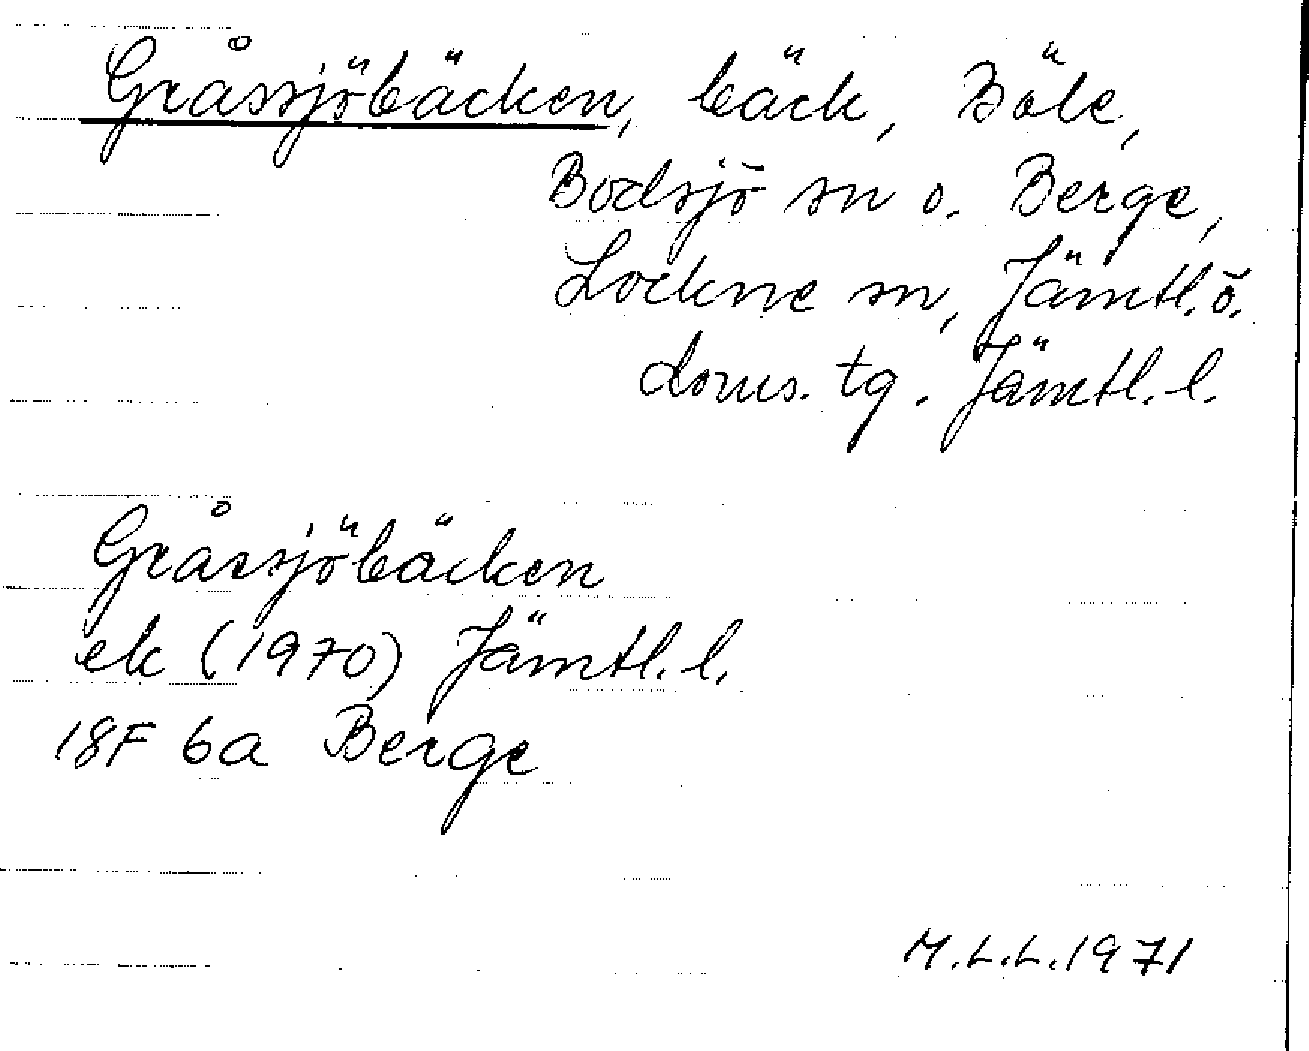 Gråssjöbäcken, bäck, Böle,
Bodsjö sn o. Berge,
Lockne sn, Jämtl. ö.
doms. tg. Jämtl. l.
Gråssjöbäcken
ek (1970) Jämtl. l.
18F 6a Berge
M.L.L. 1971